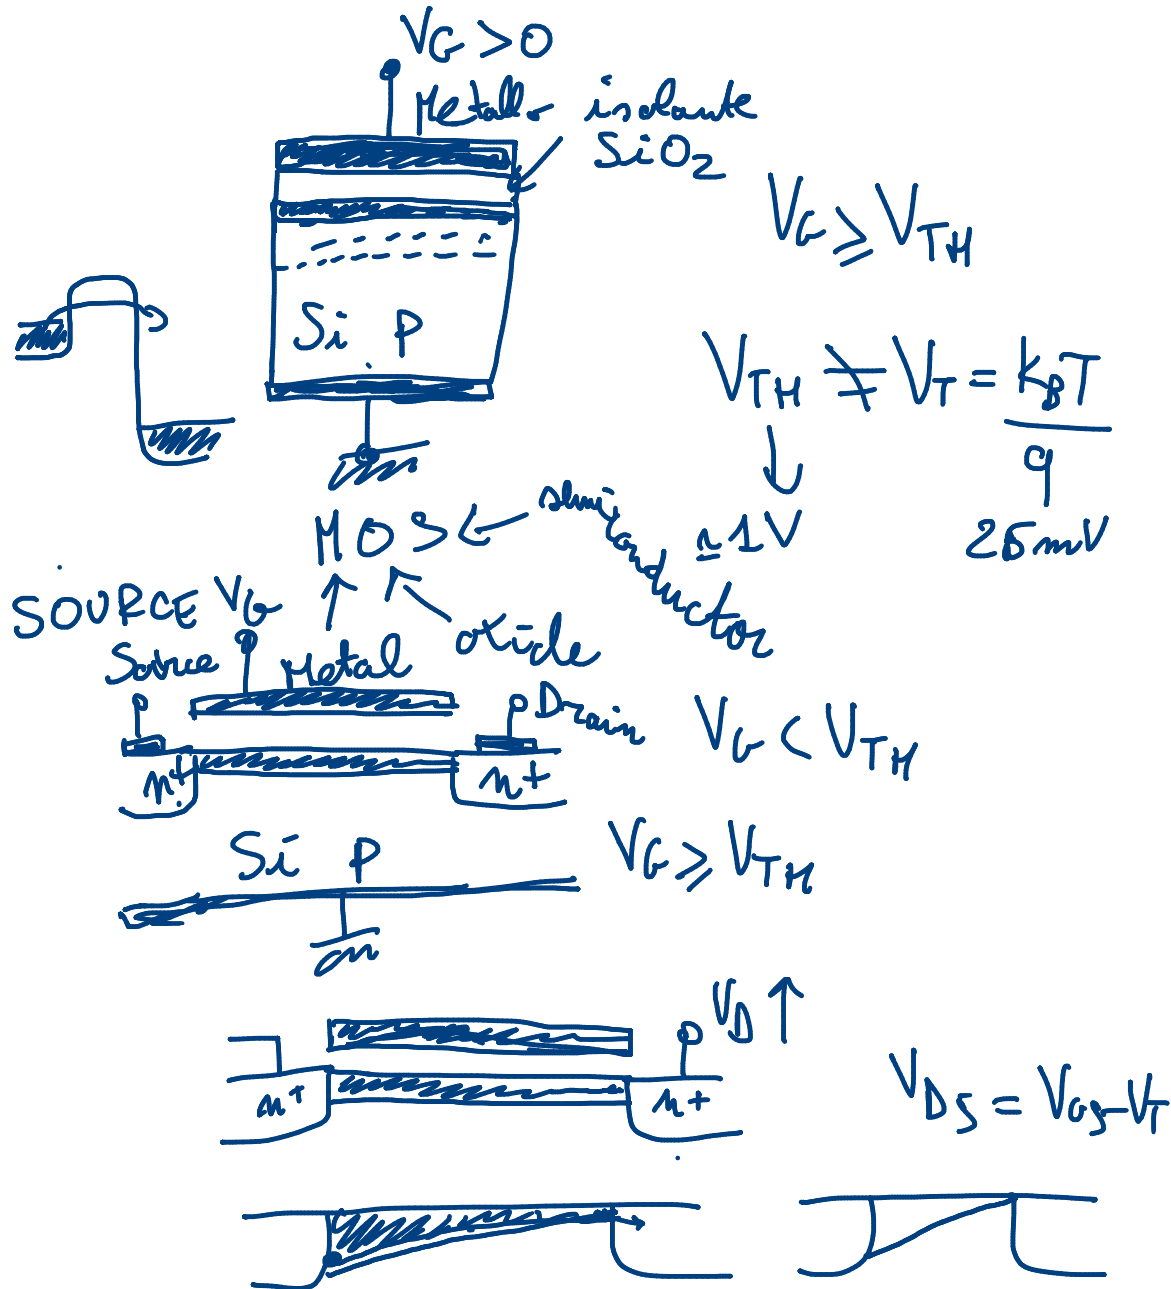 V_G > 0
Metallo isolante
SiO₂
V_G ⩾ V_TH
Si P
V_TH ≠ V_T = k_B T / q
≃ 1V
25mV
MOS
semiconductor
SOURCE V_G
oxide
Source Metal
Drain
V_G < V_TH
n+ n+
Si P
V_G ⩾ V_TH
V_D ↑
n+ n+
V_DS = V_GS - V_T